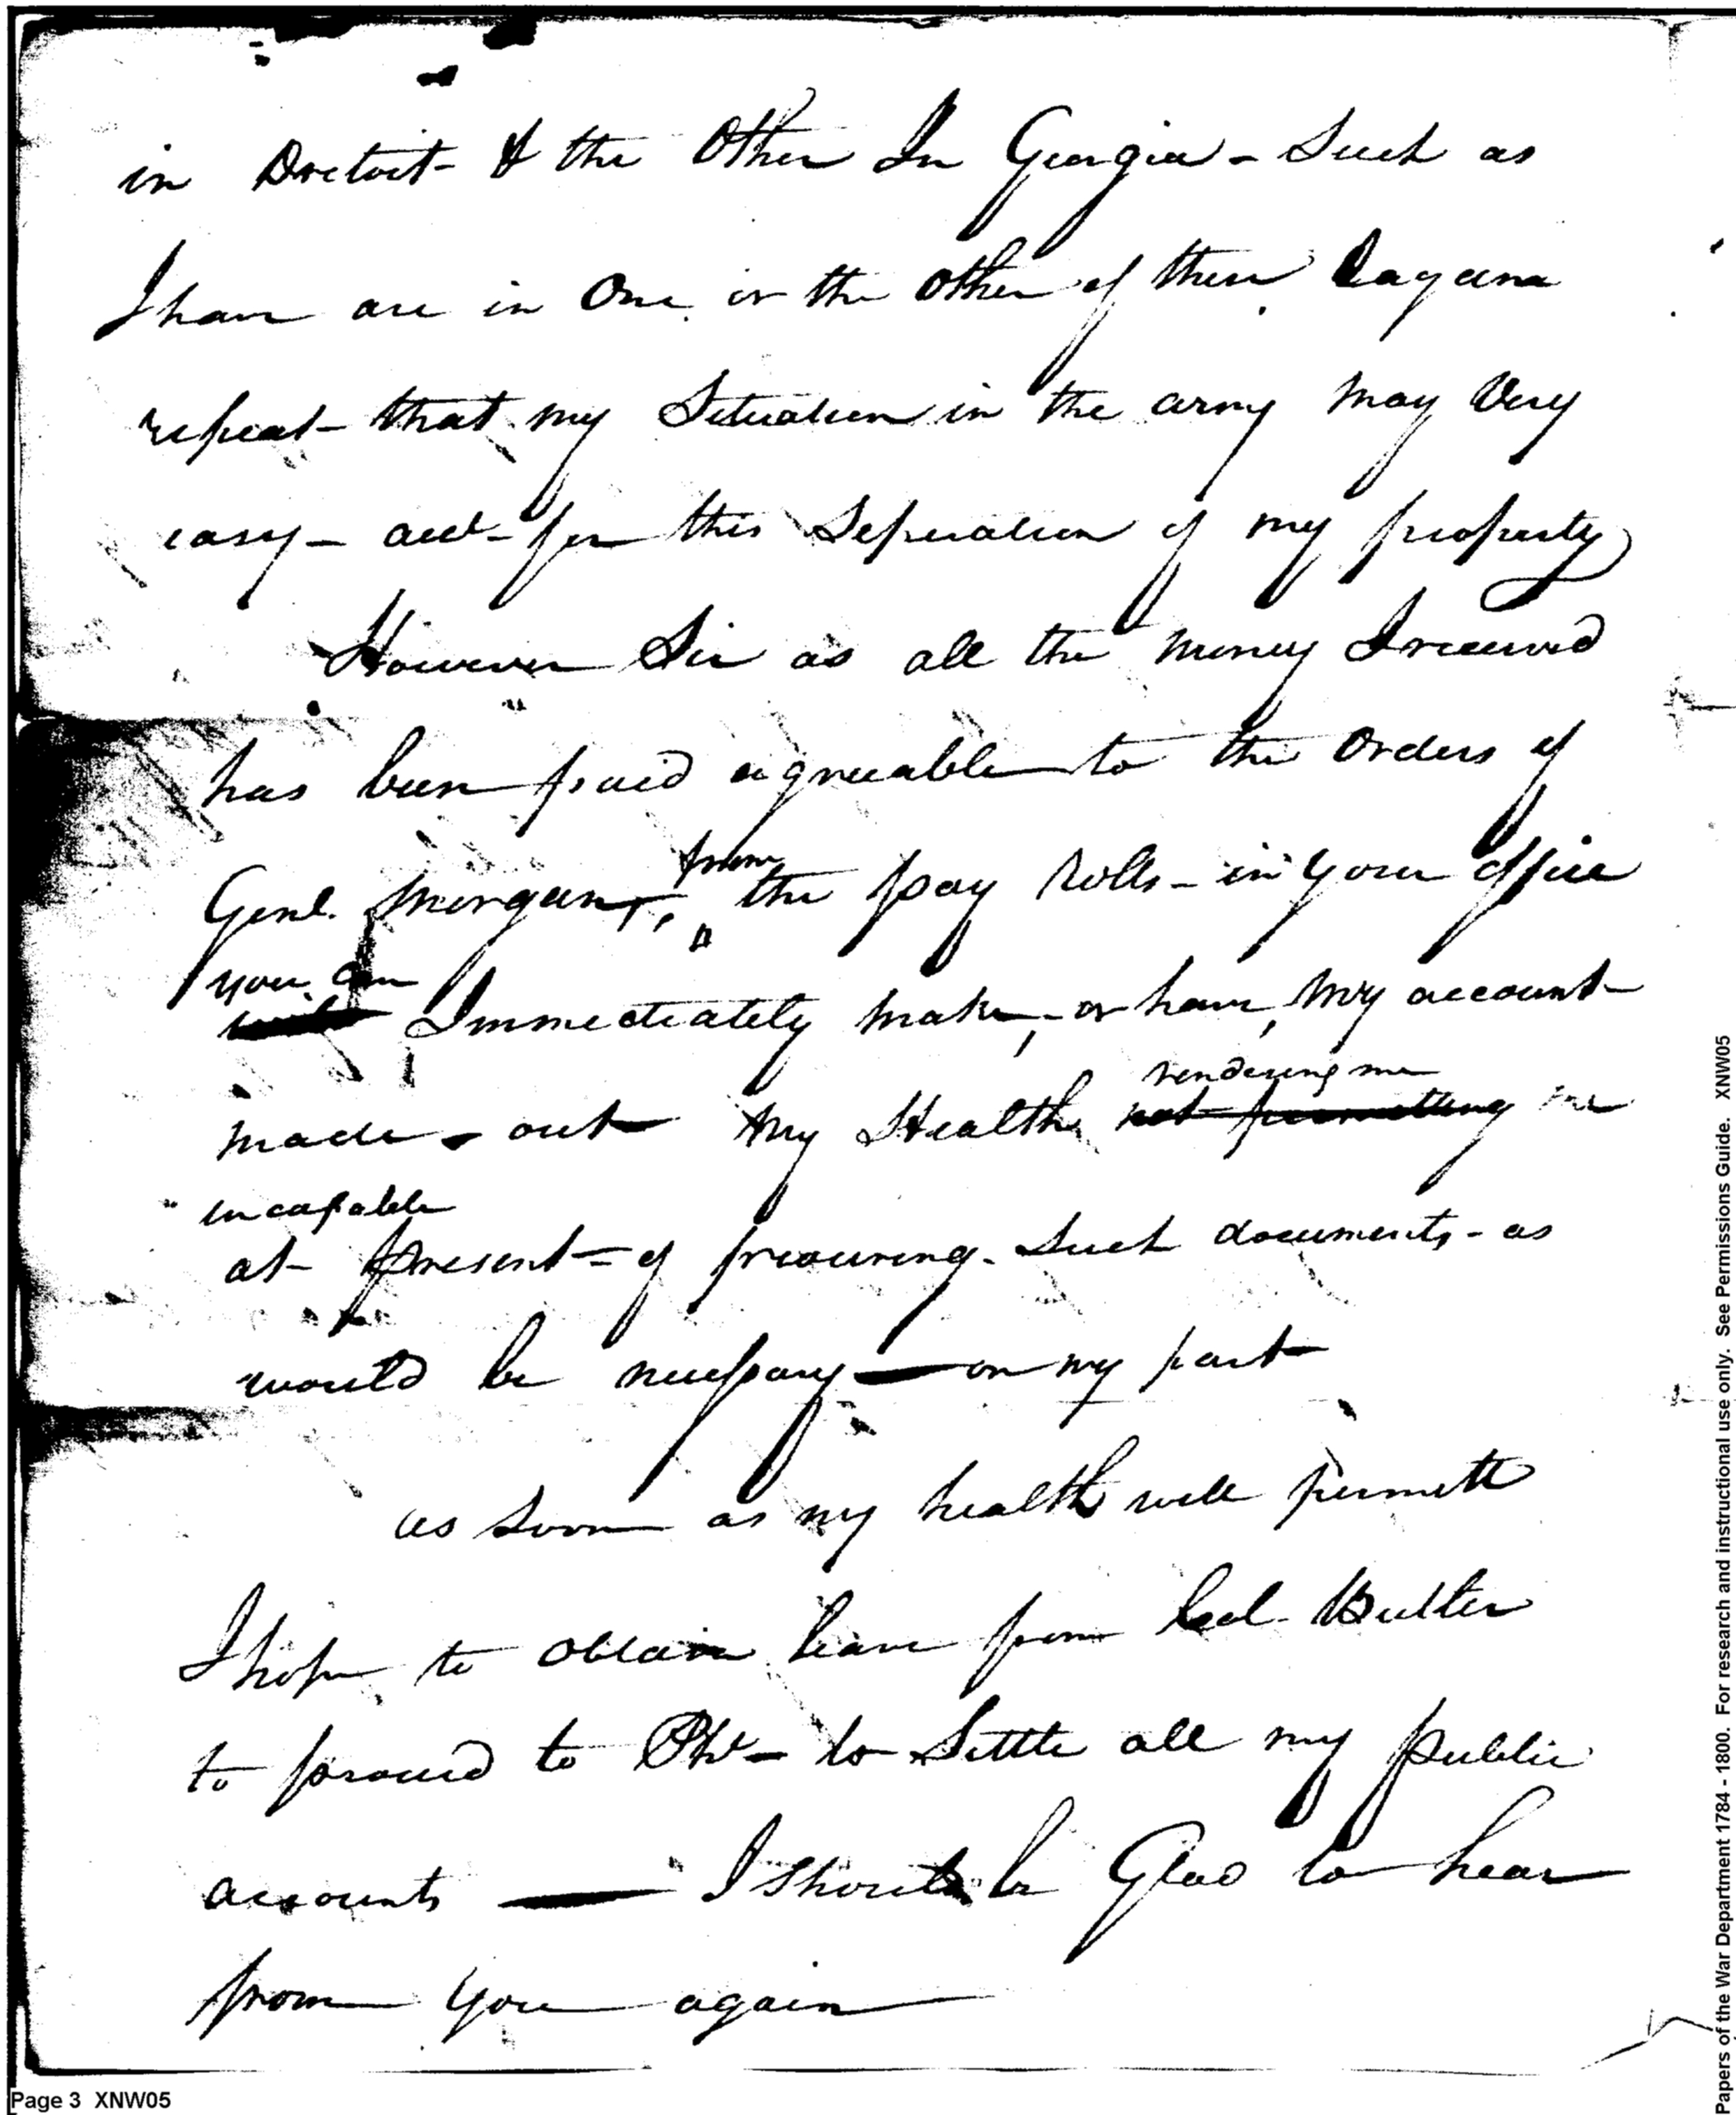 in Dretoit & the Other In Georgia - Such as
I have are in One or the Other of these I again
repeat - that my Situation in the army may Very
easy - acct for this Seperation of my property
However Sir as all the money I received
has been paid agreeable to the Orders of
from
Genl. Morgan, the pay Rolls - in your office
you can
Immediately make, - or have, my account -
rendering me
made - out my Health not permitting me
incapable
at present - of procuring - Such documents - as
would be necessary — on my part
as soon as my health will permitt
I hope to obtain leave from Col Butler
to proceed to Pha - to Settle all my public
accounts — I Should be Glad to hear
from you again
Page 3 XNW05
Papers of the War Department 1784 - 1800. For research and instructional use only. See Permissions Guide. XNW05